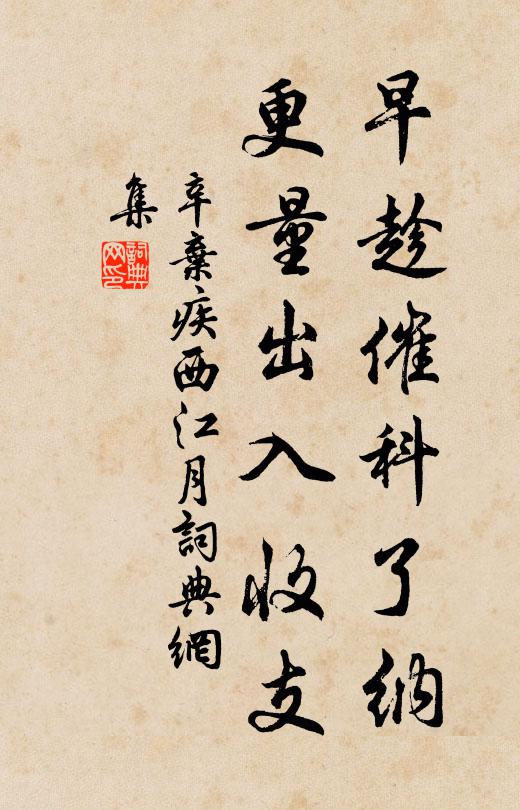 早趁催科了納
更量出入收支
辛棄疾西江月詞典網
集
詞典
网印